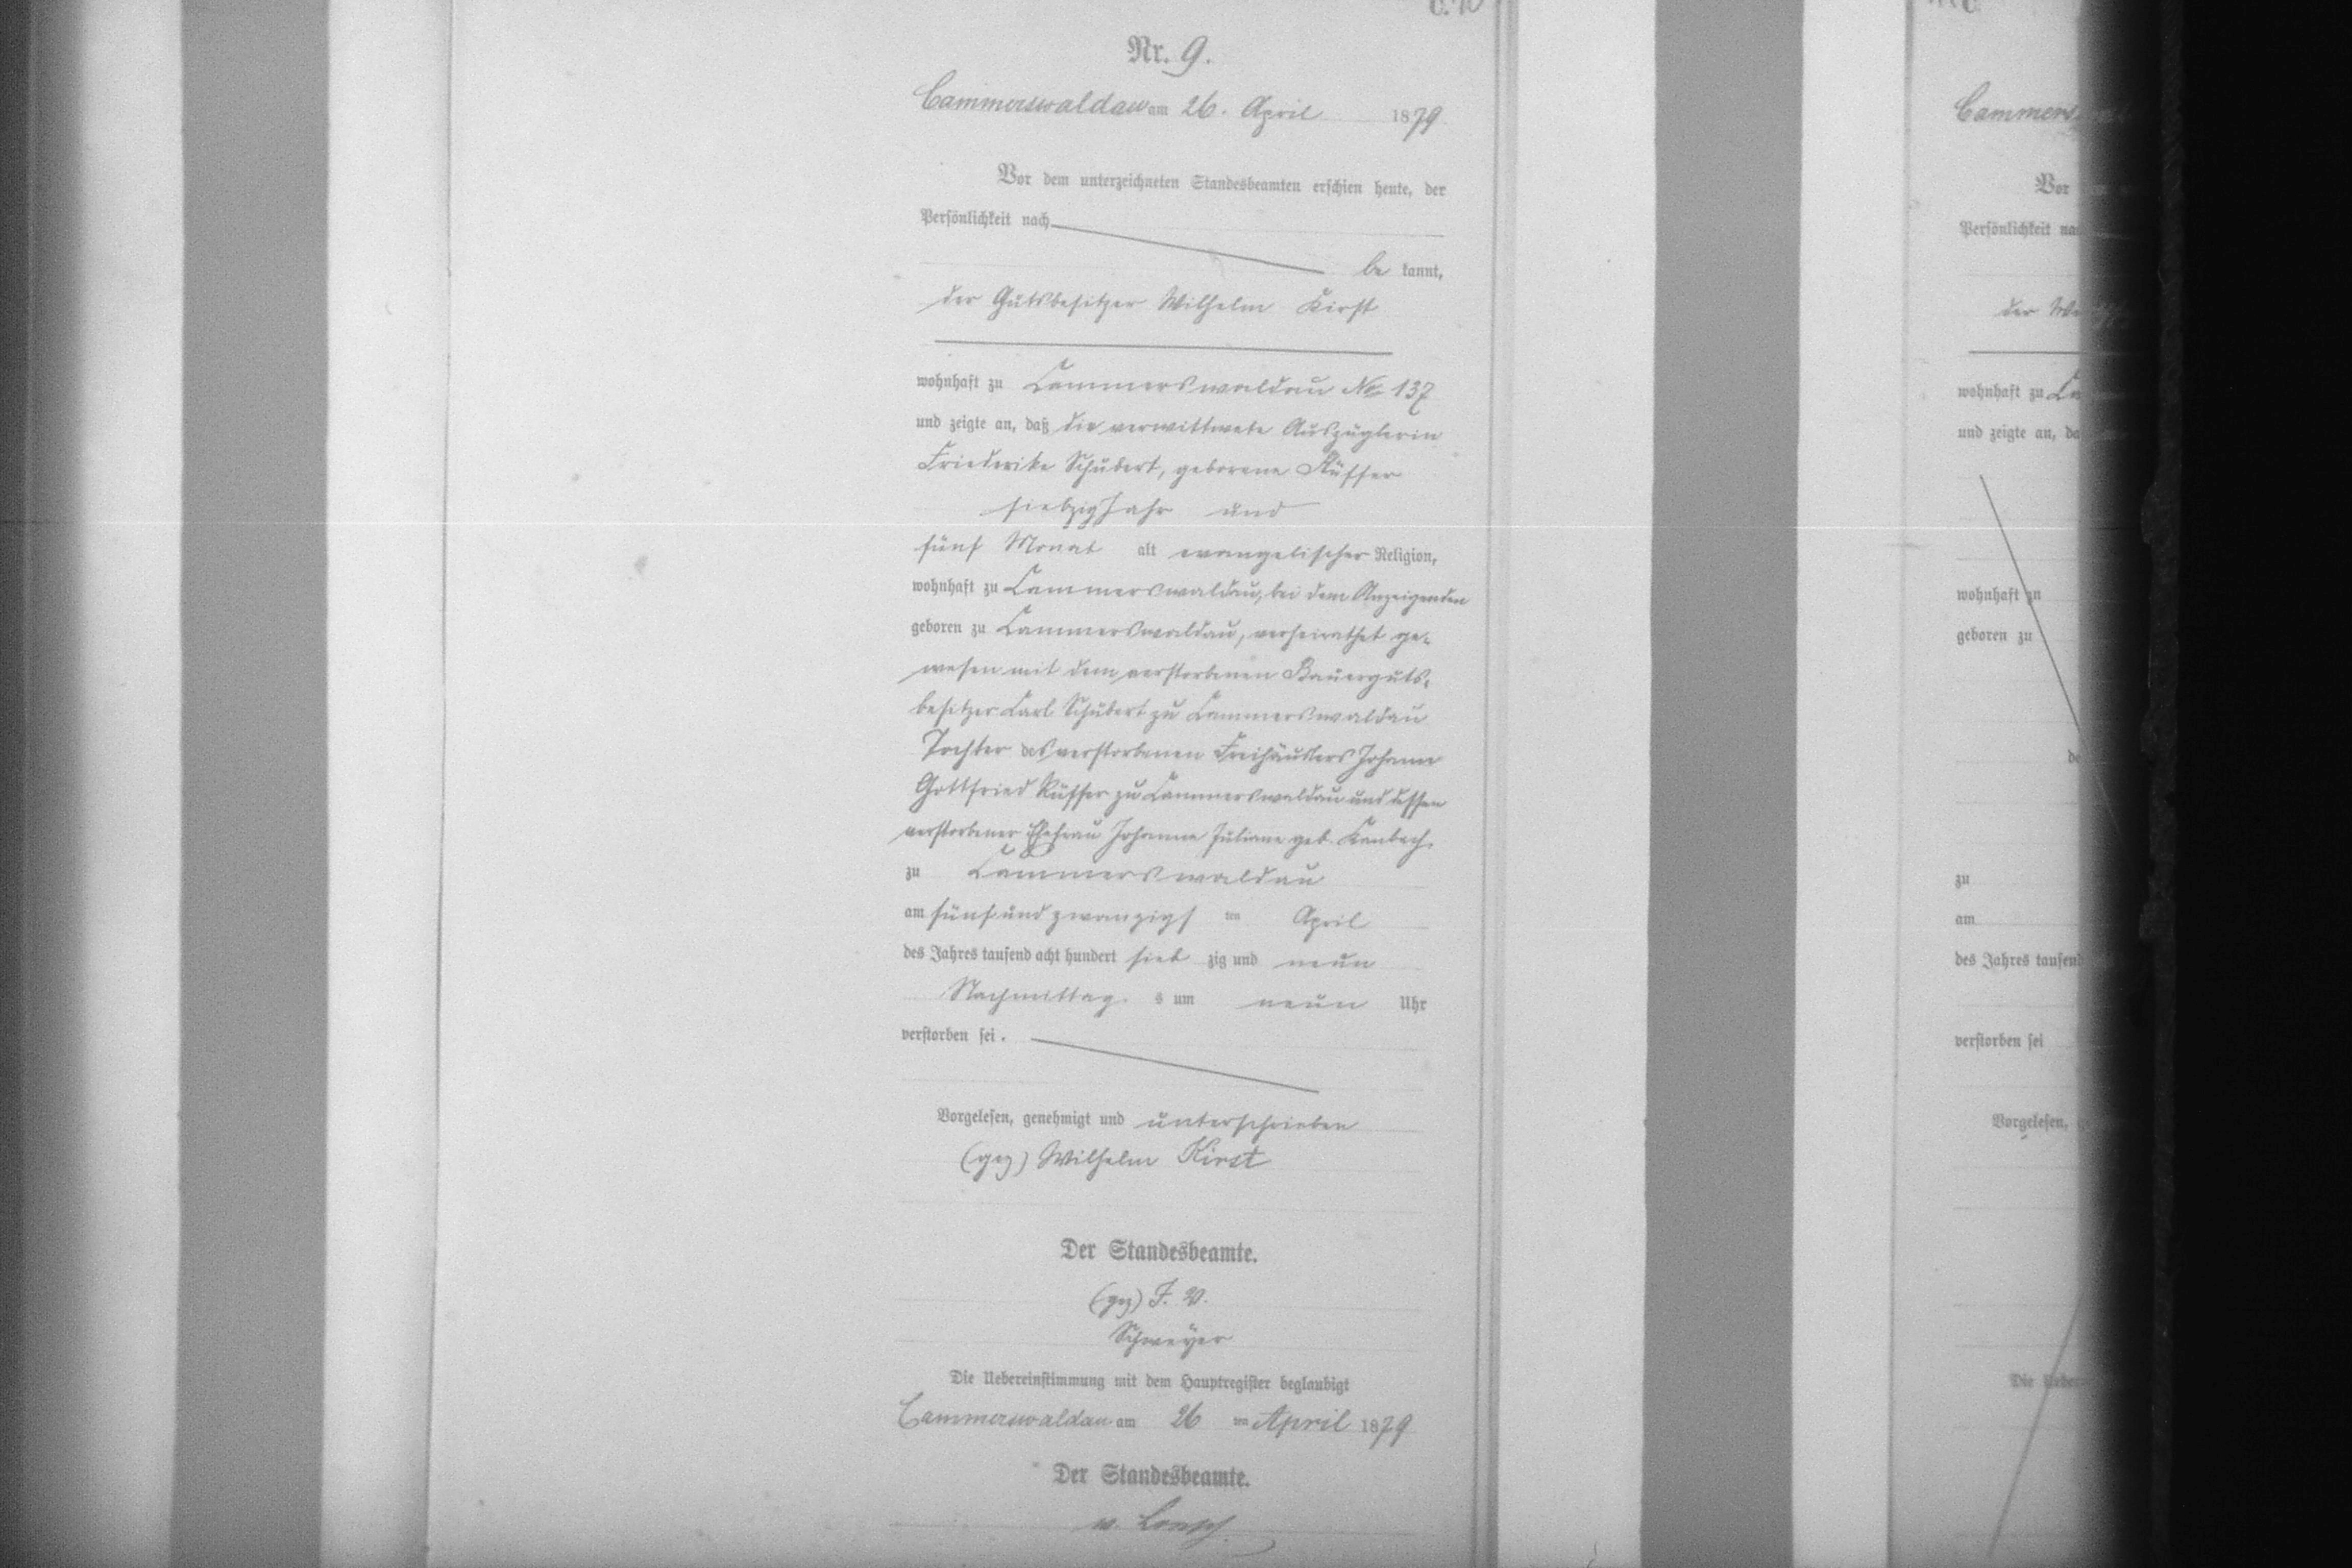 C. 10
Nr. 9.
Cammerswaldau am 26. April 1879
Vor dem unterzeichneten Standesbeamten erschien heute, der
Persönlichkeit nach
be kannt,
der Gutsbesitzer Wilhelm Kirst
wohnhaft zu Cammerswaldau No 137
und zeigte an, daß die verwittwete Auszüglerin
Friederike Schubert, geborene Rüffer
siebzig Jahr und
fünf Monat alt evangelischer Religion,
wohnhaft zu Cammerswaldau, bei dem Anzeigenden
geboren zu Cammerswaldau, verheirathet ge-
wesen mit dem verstorbenen Bauerguts-
besitzer Carl Schubert zu Cammerswaldau
Tochter des verstorbenen Freihäuslers Johann
Gottfried Rüffer zu Cammerswaldau und dessen
verstorbener Ehefrau Johanne Juliane geb. Kambach
zu Cammerswaldau
am fünf und zwanzigs ten April
des Jahres tausend acht hundert sieb zig und neun
Nachmittag s um neun Uhr
verstorben sei.
Vorgelesen, genehmigt und unterschrieben
(gez) Wilhelm Kirst
Der Standesbeamte.
(gez) J. V.
Schmeyer
Die Uebereinstimmung mit dem Hauptregister beglaubigt
Cammerswaldau am 26 ten April 1879
Der Standesbeamte.
Cammers
Vor
Persönlichkeit na
der
wohnhaft zu Ca
und zeigte an, da
wohnhaft zu
geboren zu
zu
am
des Jahres tausend
verstorben sei
Vorgelesen,
Die Ueber